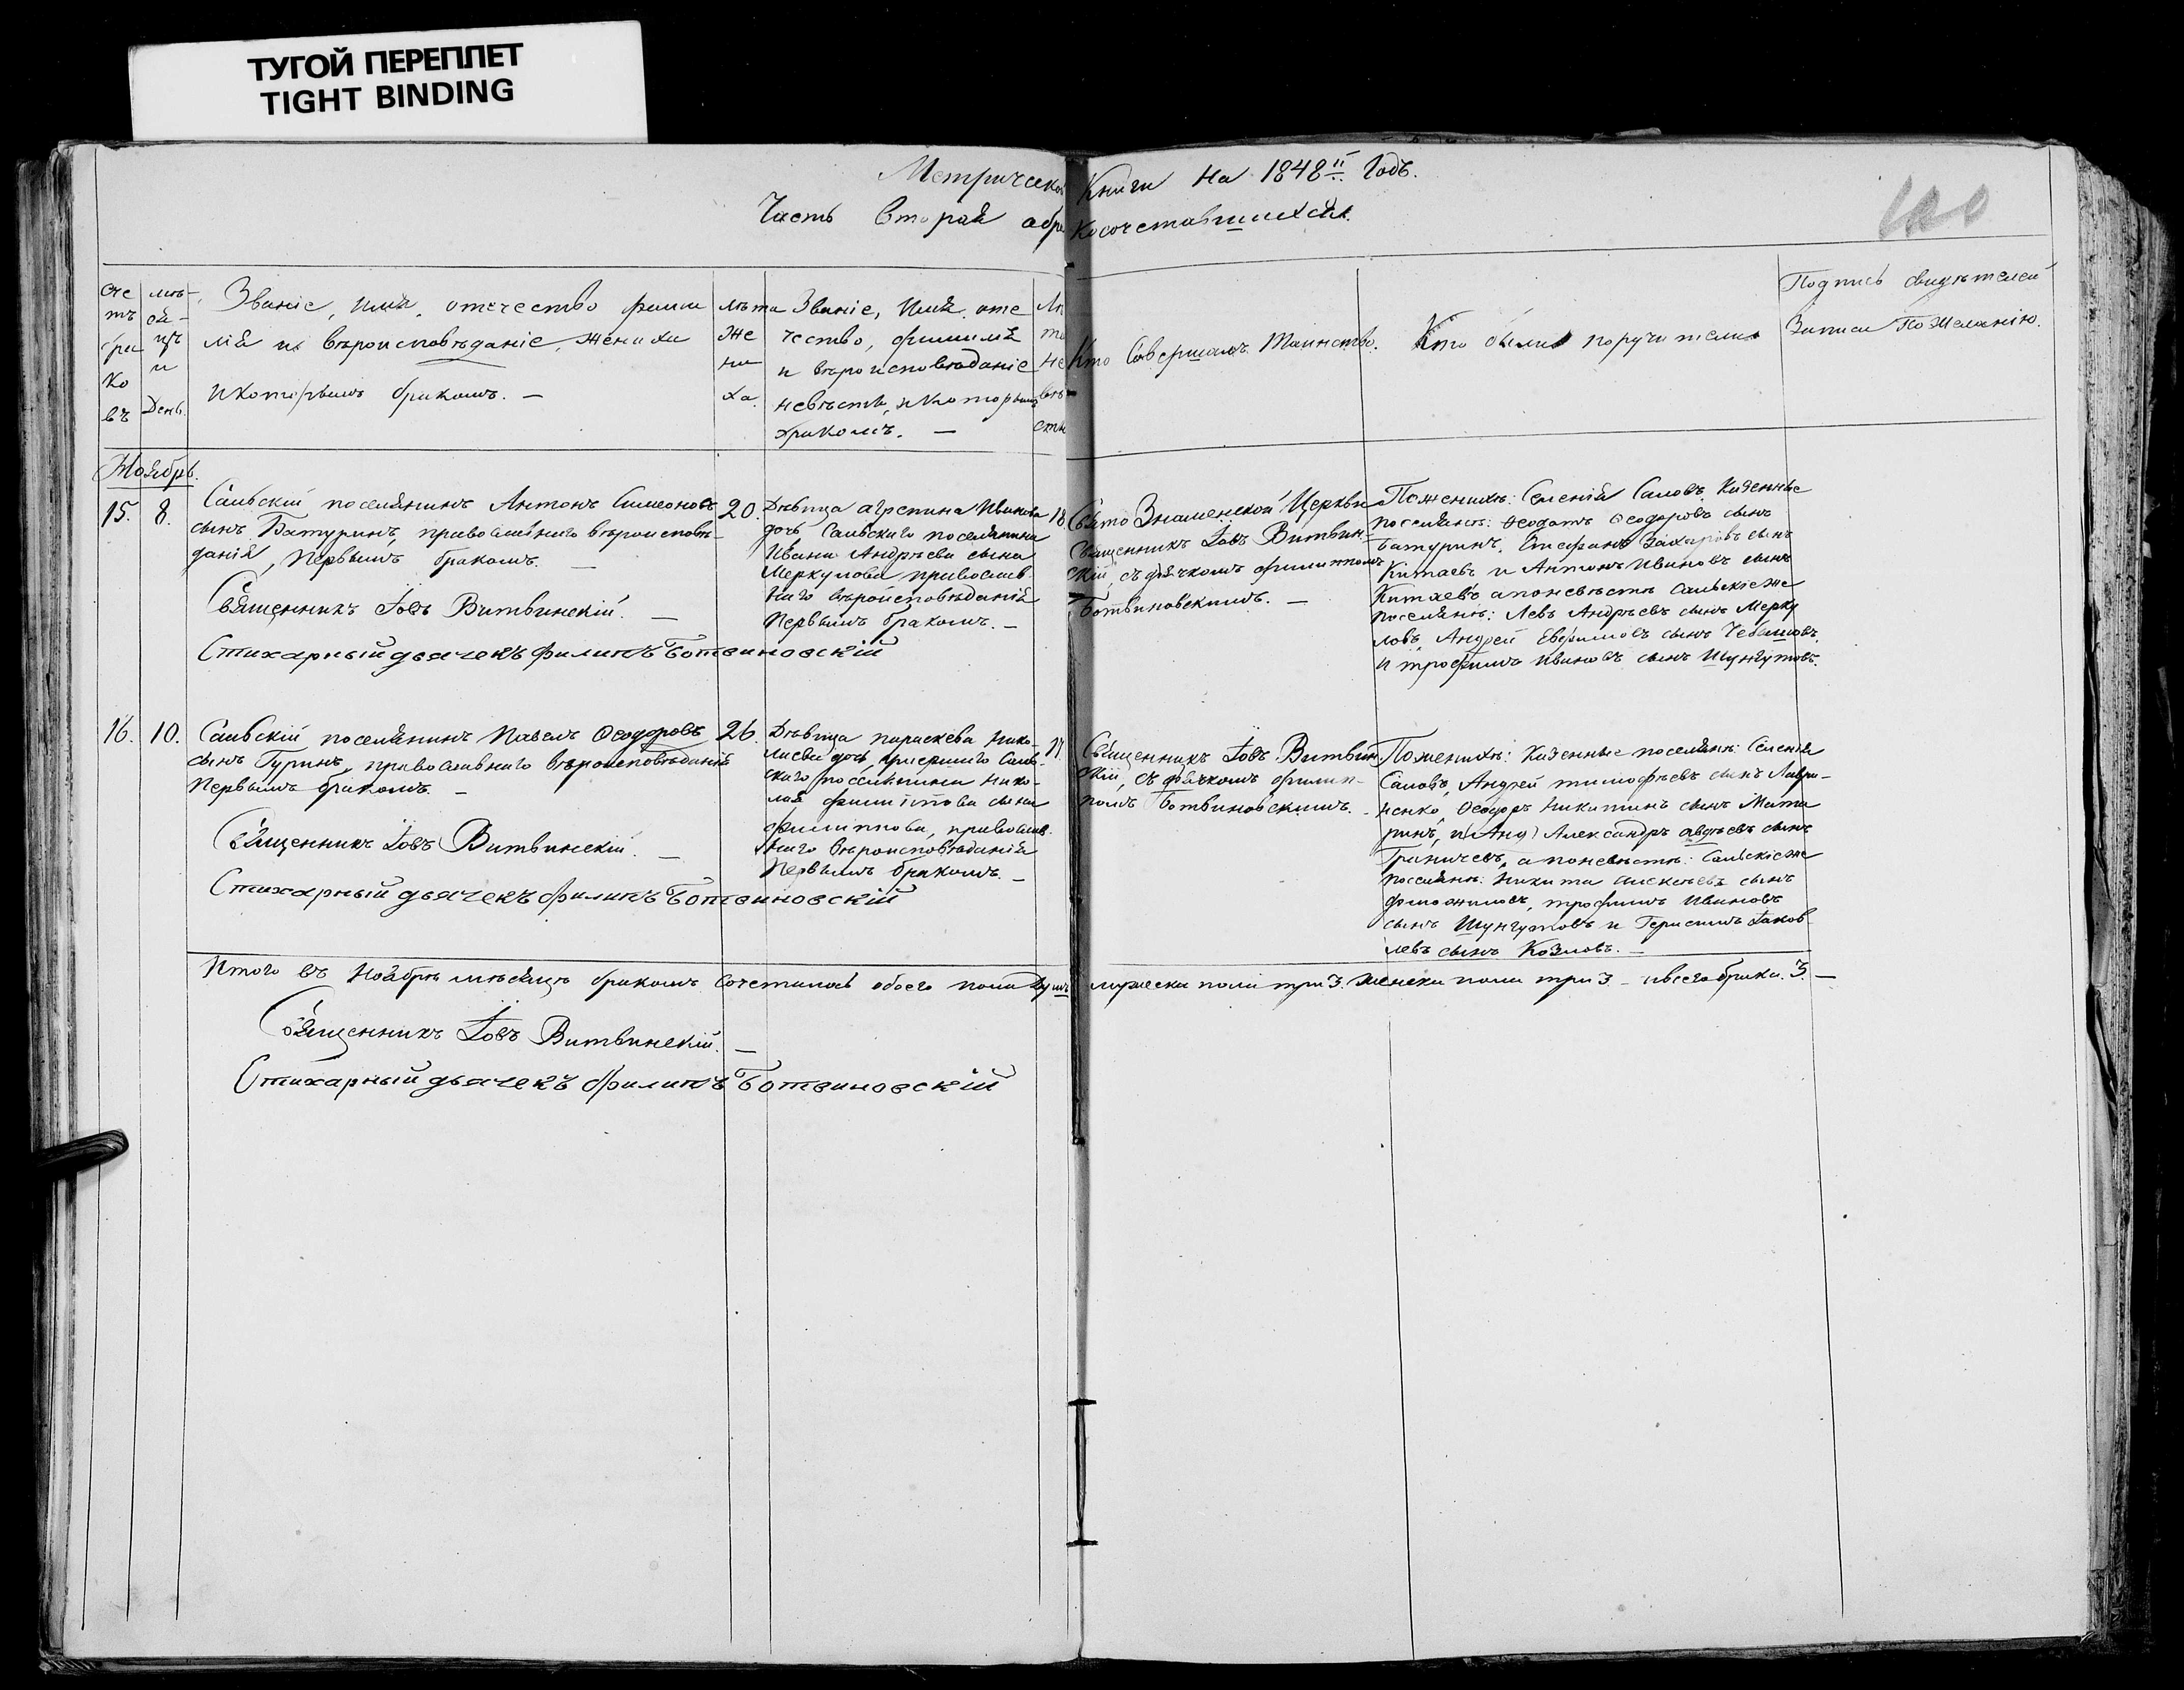 ТУГОЙ ПЕРЕПЛЕТ
TIGHT BINDING
Метрической Книги на 1848й Годъ.
Часть вторая о бракосочетавшихся.
Сче
тъ
бра
ко
въ
мѣ-
ся-
цъ
и
День.
Званіе, имя, отечество фами
лія и вѣроисповѣданіе, жениха
и которымъ бракомъ. —
Лѣта
же
ни
ха.
Званіе, имя, оте
чество, фамилія
и вѣроисповѣданіе
невѣсты, и которымъ
бракомъ. —
Лѣ
та
не
вѣ
сты
Кто Совершалъ Таинство.
Кто были поручители
Подпись свидѣтелей
Записи По Желанію.
Ноябрь.
15.
8.
поселянинъ Антонъ Симеоновъ
сынъ Батуринъ, православнаго вѣроисповѣ-
данія, первымъ бракомъ. —
Священникъ Іовъ Витвинскій. —
Стихарный дьячекъ Филипъ Ботвиновскій
20.
Дѣвица Агрепина Иванова
дочь поселянина
Ивана Андрѣева сына
Меркулова православ-
наго вѣроисповѣданія
первымъ бракомъ. —
18
Свято Знаменской Церкви
Священникъ Іовъ Витвин-
скій, съ дьячкомъ Филиппомъ
Ботвиновскимъ. —
По женихѣ: Казенные
поселяне: Феодотъ Феодоровъ сынъ
Батуринъ, Стефанъ Захаровъ сынъ
Китаевъ и Антонъ Ивановъ сынъ
Китаевъ а по невѣстѣ
поселяне: Левъ Андрѣевъ сынъ Мерку
ловъ, Андрей Евфимовъ сынъ Чебашовъ,
и Трофимъ Ивановъ сынъ Шунгутовъ.
16.
10.
поселянинъ Павелъ Феодоровъ
сынъ Гуринъ, православнаго вѣроисповѣданія
Первымъ бракомъ. —
Священникъ Іовъ Витвинскій. —
Стихарный дьячекъ Филипъ Ботвиновскій
26.
Дѣвица Параскева Нико-
лаева дочь,
поселянина Нико-
лая Филиппова сына
Филиппова, православ-
наго вѣроисповѣданія
Первымъ бракомъ. —
17
Священникъ Іовъ Витвин-
скій, съ дьячкомъ Филип-
помъ Ботвиновскимъ. —
По женихѣ: Казенные поселяне:
Андрей Тимофѣевъ сынъ Лаври-
ненко, Феодоръ Никитинъ сынъ Мата
ринъ, и (Анд) Александръ Авдѣевъ сынъ
а по невѣстѣ:
поселяне: Никита Алексѣевъ сынъ
Трофимъ Ивановъ
сынъ Шунгутовъ и Герасимъ Іаков
левъ сынъ Козловъ. —
Итого въ Ноябрѣ мѣсяцѣ бракомъ сочеталось обоего пола душъ мужеска пола три 3. женска пола три 3 — и всего брака. 3. —
Священникъ Іовъ Витвинскій. —
Стихарный дьячекъ Филипъ Ботвиновскій